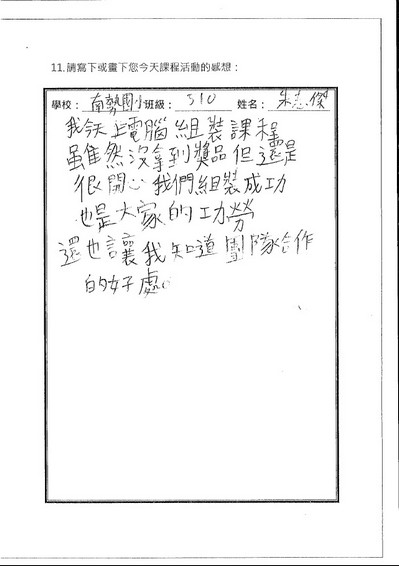 11.請寫下或畫下您今天課程活動的感想：
學校：南勢國小班級：510 姓名：朱志傑
我今天上電腦組裝課程
雖然沒拿到獎品但還是
很開心我們組裝成功
也是大家的功勞
還也讓我知道團隊合作
的好處。